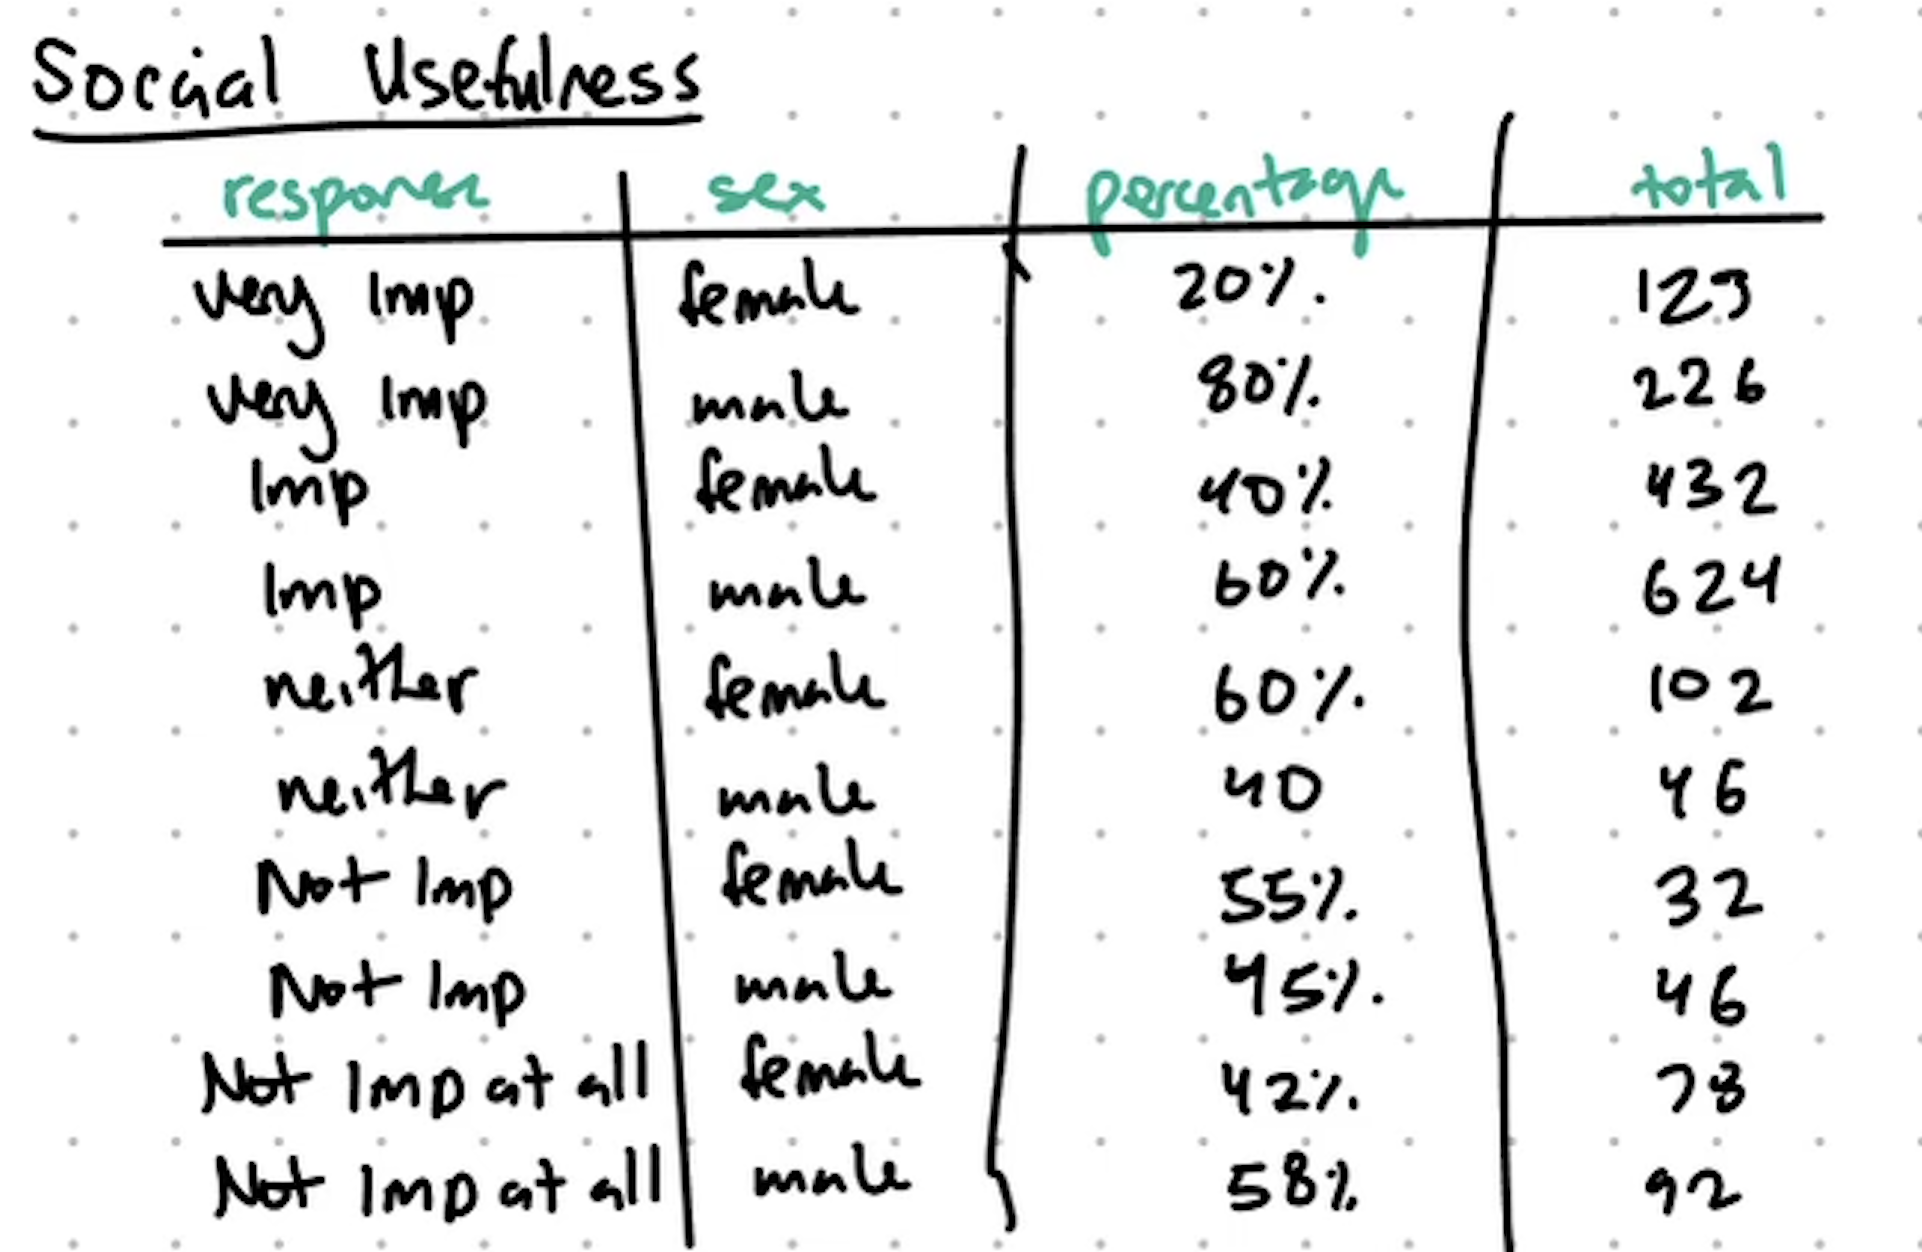 Social Usefulness
response sex percentage total
very Imp female 20% 123
very Imp male 80% 226
Imp female 40% 432
Imp male 60% 624
neither female 60% 102
neither male 40 46
Not Imp female 55% 32
Not Imp male 45% 46
Not Imp at all female 42% 78
Not Imp at all male 58% 92